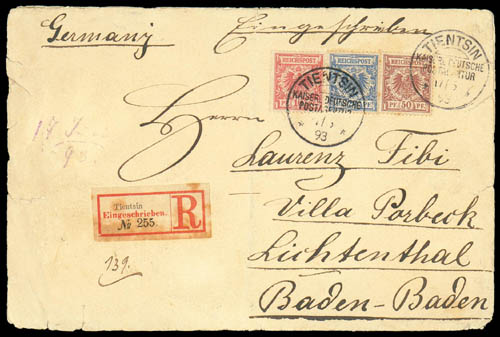 Germany
Eingeschrieben
REICHSPOST REICHSPOST REICHSPOST
50 PF.
TIENTSIN
KAISERL. DEUTSCHE
POSTAGENTUR
93
TIENTSIN
KAISERL. DEUTSCHE
POSTAGENTUR
93
Herrn
Laurenz Fibi
Villa Porbeck
Lichtenthal
Baden-Baden
Tientsin
Eingeschrieben.
№ 255.
R
139.